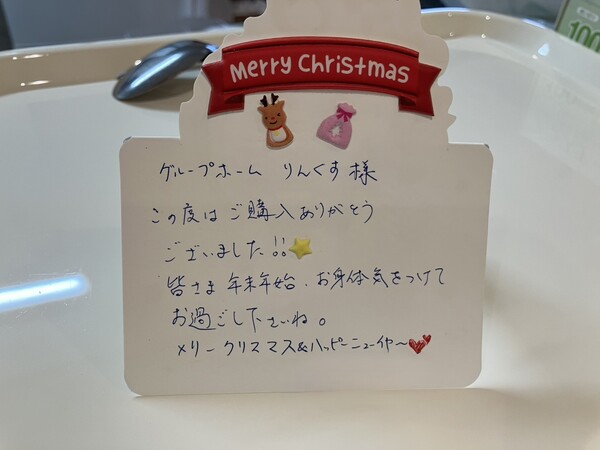 Merry Christmas
グループホーム りんくす様
この度はご購入ありがとう
ございました!!
皆さま年末年始、お身体気をつけて
お過ごし下さいね。
メリークリスマス&ハッピーニューイヤー〜
100